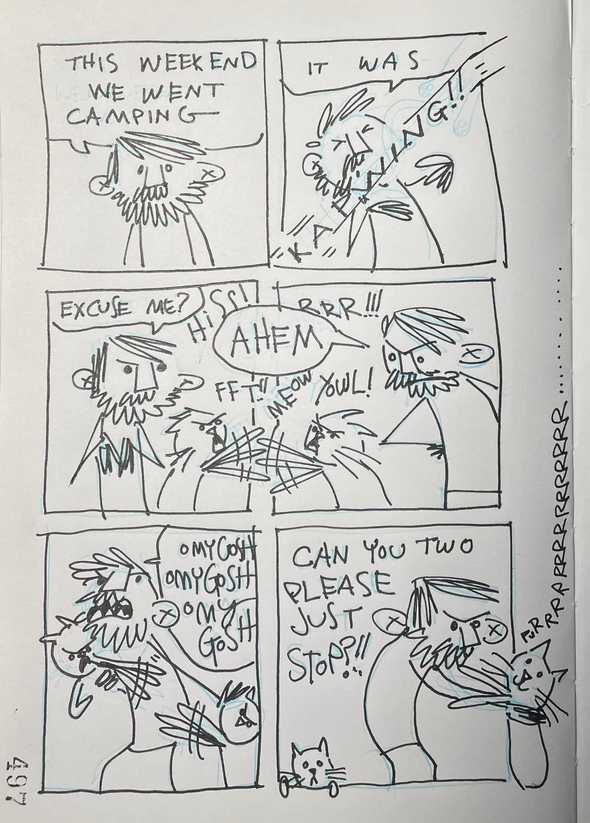 THIS WEEKEND
WE WENT
CAMPING—
IT WAS
KAPWNING!!
EXCUSE ME?
HiSS!!
FFT!!
MEOW
AHEM
RRR!!!
YOWL!
OMYGOSH
OMYGOSH
OMY
GOSH
CAN YOU TWO
PLEASE
JUST
STOP?!!
PURRRRRRRRRRRRRRR...........
497